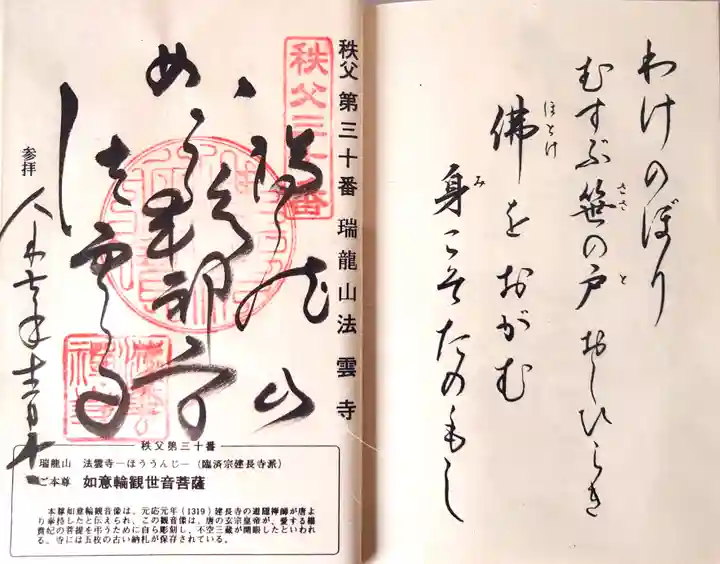 わけのぼり
むすぶ笹の戸おしひらき
ささ
と
佛をおがむ
ほとけ
身こそたのもし
み
秩父 第三十番 瑞龍山法雲寺
秩父三十番
瑞龍山
法雲寺
参拝
秩父第三十番
瑞龍山 法雲寺―ほううんじ―(臨済宗建長寺派)
ご本尊 如意輪観世音菩薩
本尊如意輪観音像は、元応元年(1319)建長寺の道隠禅師が唐よ
り奉持したと伝えられ、この観音像は、唐の玄宗皇帝が、愛する楊
貴妃の菩提を弔うために自ら彫刻し、不空三蔵が開眼したといわれ
る。寺には五枚の古い納札が保存されている。